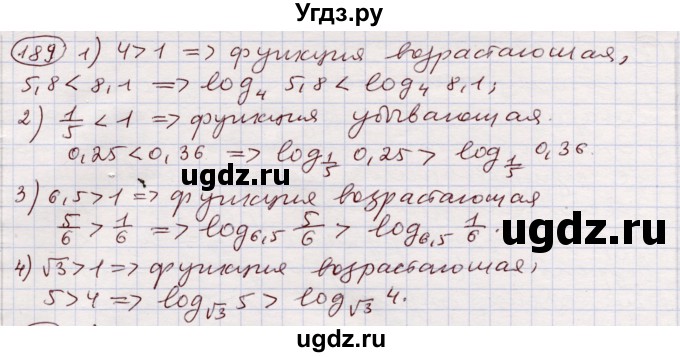 Угдз.ру
189 1) 4 > 1 => функция возрастающая,
5,8 < 8,1 => log₄ 5,8 < log₄ 8,1;
2) 1/5 < 1 => функция убывающая.
0,25 < 0,36 => log_{1/5} 0,25 > log_{1/5} 0,36.
угдз.ру
3) 6,5 > 1 => функция возрастающая
5/6 > 1/6 => log_{6,5} 5/6 > log_{6,5} 1/6.
угдз.ру
4) √3 > 1 => функция возрастающая,
5 > 4 => log_{√3} 5 > log_{√3} 4.
угдз.ру